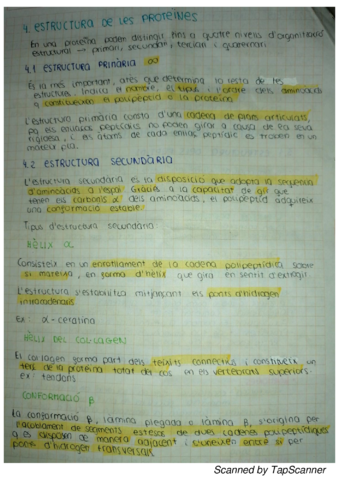 4. ESTRUCTURA DE LES PROTEÏNES
En una proteïna poden distingir fins a quatre nivells d'organització
estructural → primari, secundari, terciari i quaternari.
4.1 ESTRUCTURA PRIMÀRIA
És la més important, atès que determina la resta de les
estructures. Indica el nombre, el tipus i l'ordre dels aminoàcids
q constitueixen el polipèptid o la proteïna.
L'estructura primària consta d'una cadena de plans articulats,
pq els enllaços peptídics no poden girar a causa de la seva
rigidesa, i els àtoms de cada enllaç peptídic es troben en un
mateix pla.
4.2 ESTRUCTURA SECUNDÀRIA
L'estructura secundària és la disposició que adopta la seqüència
d'aminoàcids a l'espai. Gràcies a la capacitat de gir que
tenen els carbonis α dels aminoàcids, el polipèptid adquireix
una conformació estable.
Tipus d'estructura secundària:
HÈLIX α
Consisteix en un enrotllament de la cadena polipeptídica sobre
si mateixa, en forma d'hèlix que gira en sentit dextrogir.
L'estructura s'estabilitza mitjançant els ponts d'hidrogen
intracatenaris.
Ex: α-ceratina
HÈLIX DEL COL·LAGEN
El col·lagen forma part dels teixits connectius i constitueix un
terç de la proteïna total del cos en els vertebrats superiors.
ex: tendons
CONFORMACIÓ β
La conformació β, làmina plegada o làmina β, s'origina per
l'acoblament de segments estesos de dues cadenes polipeptídiques
q es disposen de manera adjacent i s'uneixen entre si per
ponts d'hidrogen transversals.
Scanned by TapScanner